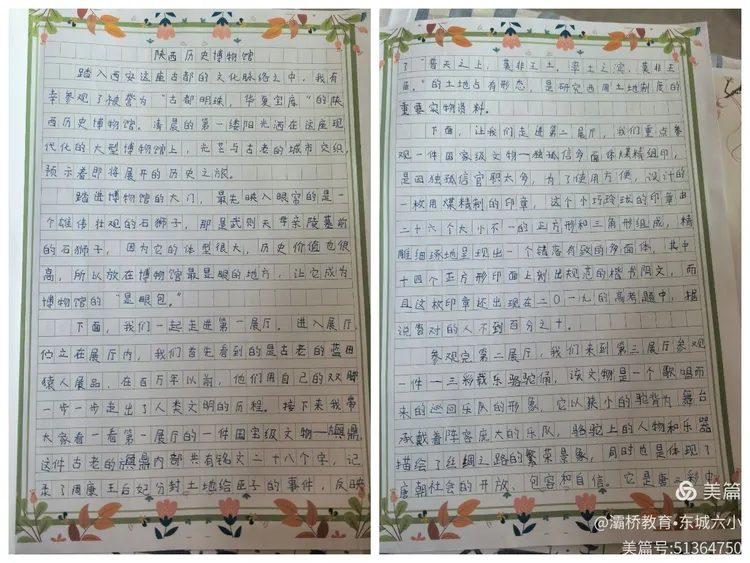 陕西历史博物馆
踏入西安这座古都的文化脉络之中，我有
幸参观了被誉为“古都明珠，华夏宝库”的陕
西历史博物馆。清晨的第一缕阳光洒在这座现
代化的大型博物馆上，光芒与古老的城市交织，
预示着即将展开的历史之旅。
踏进博物馆的大门，最先映入眼帘的是一
个雄伟壮观的石狮子，那是武则天母亲陵墓前
的石狮子，因为它的体型很大，历史价值也很
高，所以放在博物馆最显眼的地方，让它成为
博物馆的“显眼包。”
下面，我们一起走进第一展厅。进入展厅，
伫立在展厅内，我们首先看到的是古老的蓝田
猿人展品，在百万年以前，他们用自己的双脚
一步一步走出了人类文明的历程。接下来我带
大家看一看第一展厅的一件国宝级文物—旟鼎，
这件古老的旟鼎内部共有铭文二十八个字，记
录了周康王后妃分封土地给臣子的事件，反映
了“普天之上，莫非王土，率土之滨，莫非王
臣。”的土地占有形态，是研究西周土地制度的
重要实物资料。
下面，让我们走进第二展厅，我们重点参
观一件国家级文物—独孤信多面体煤精组印，
是因独孤信官职太多，为了使用方便，设计的
一枚用煤精制的印章，这个小巧玲珑的印章由
二十六个大小不一的正方形和三角形组成，精
雕细琢地呈现出一个错落有致的多面体，其中
十四个正方形印面上刻出规范的楷书阴文，而
且这枚印章还出现在二0一九的高考题中，据
说答对的人不到百分之十。
参观完第二展厅，我们来到第三展厅参观
一件一三彩载乐骆驼俑，该文物是一个歌唱而
来的巡回乐队的形象，它以狭小的驼背为舞台
承载着阵容庞大的乐队，骆驼上的人物和乐器
描绘了丝绸之路的繁荣景象，同时也是体现了
唐朝社会的开放、包容和自信。它是唐三彩中
美篇
@灞桥教育•东城六小
美篇号:51364750